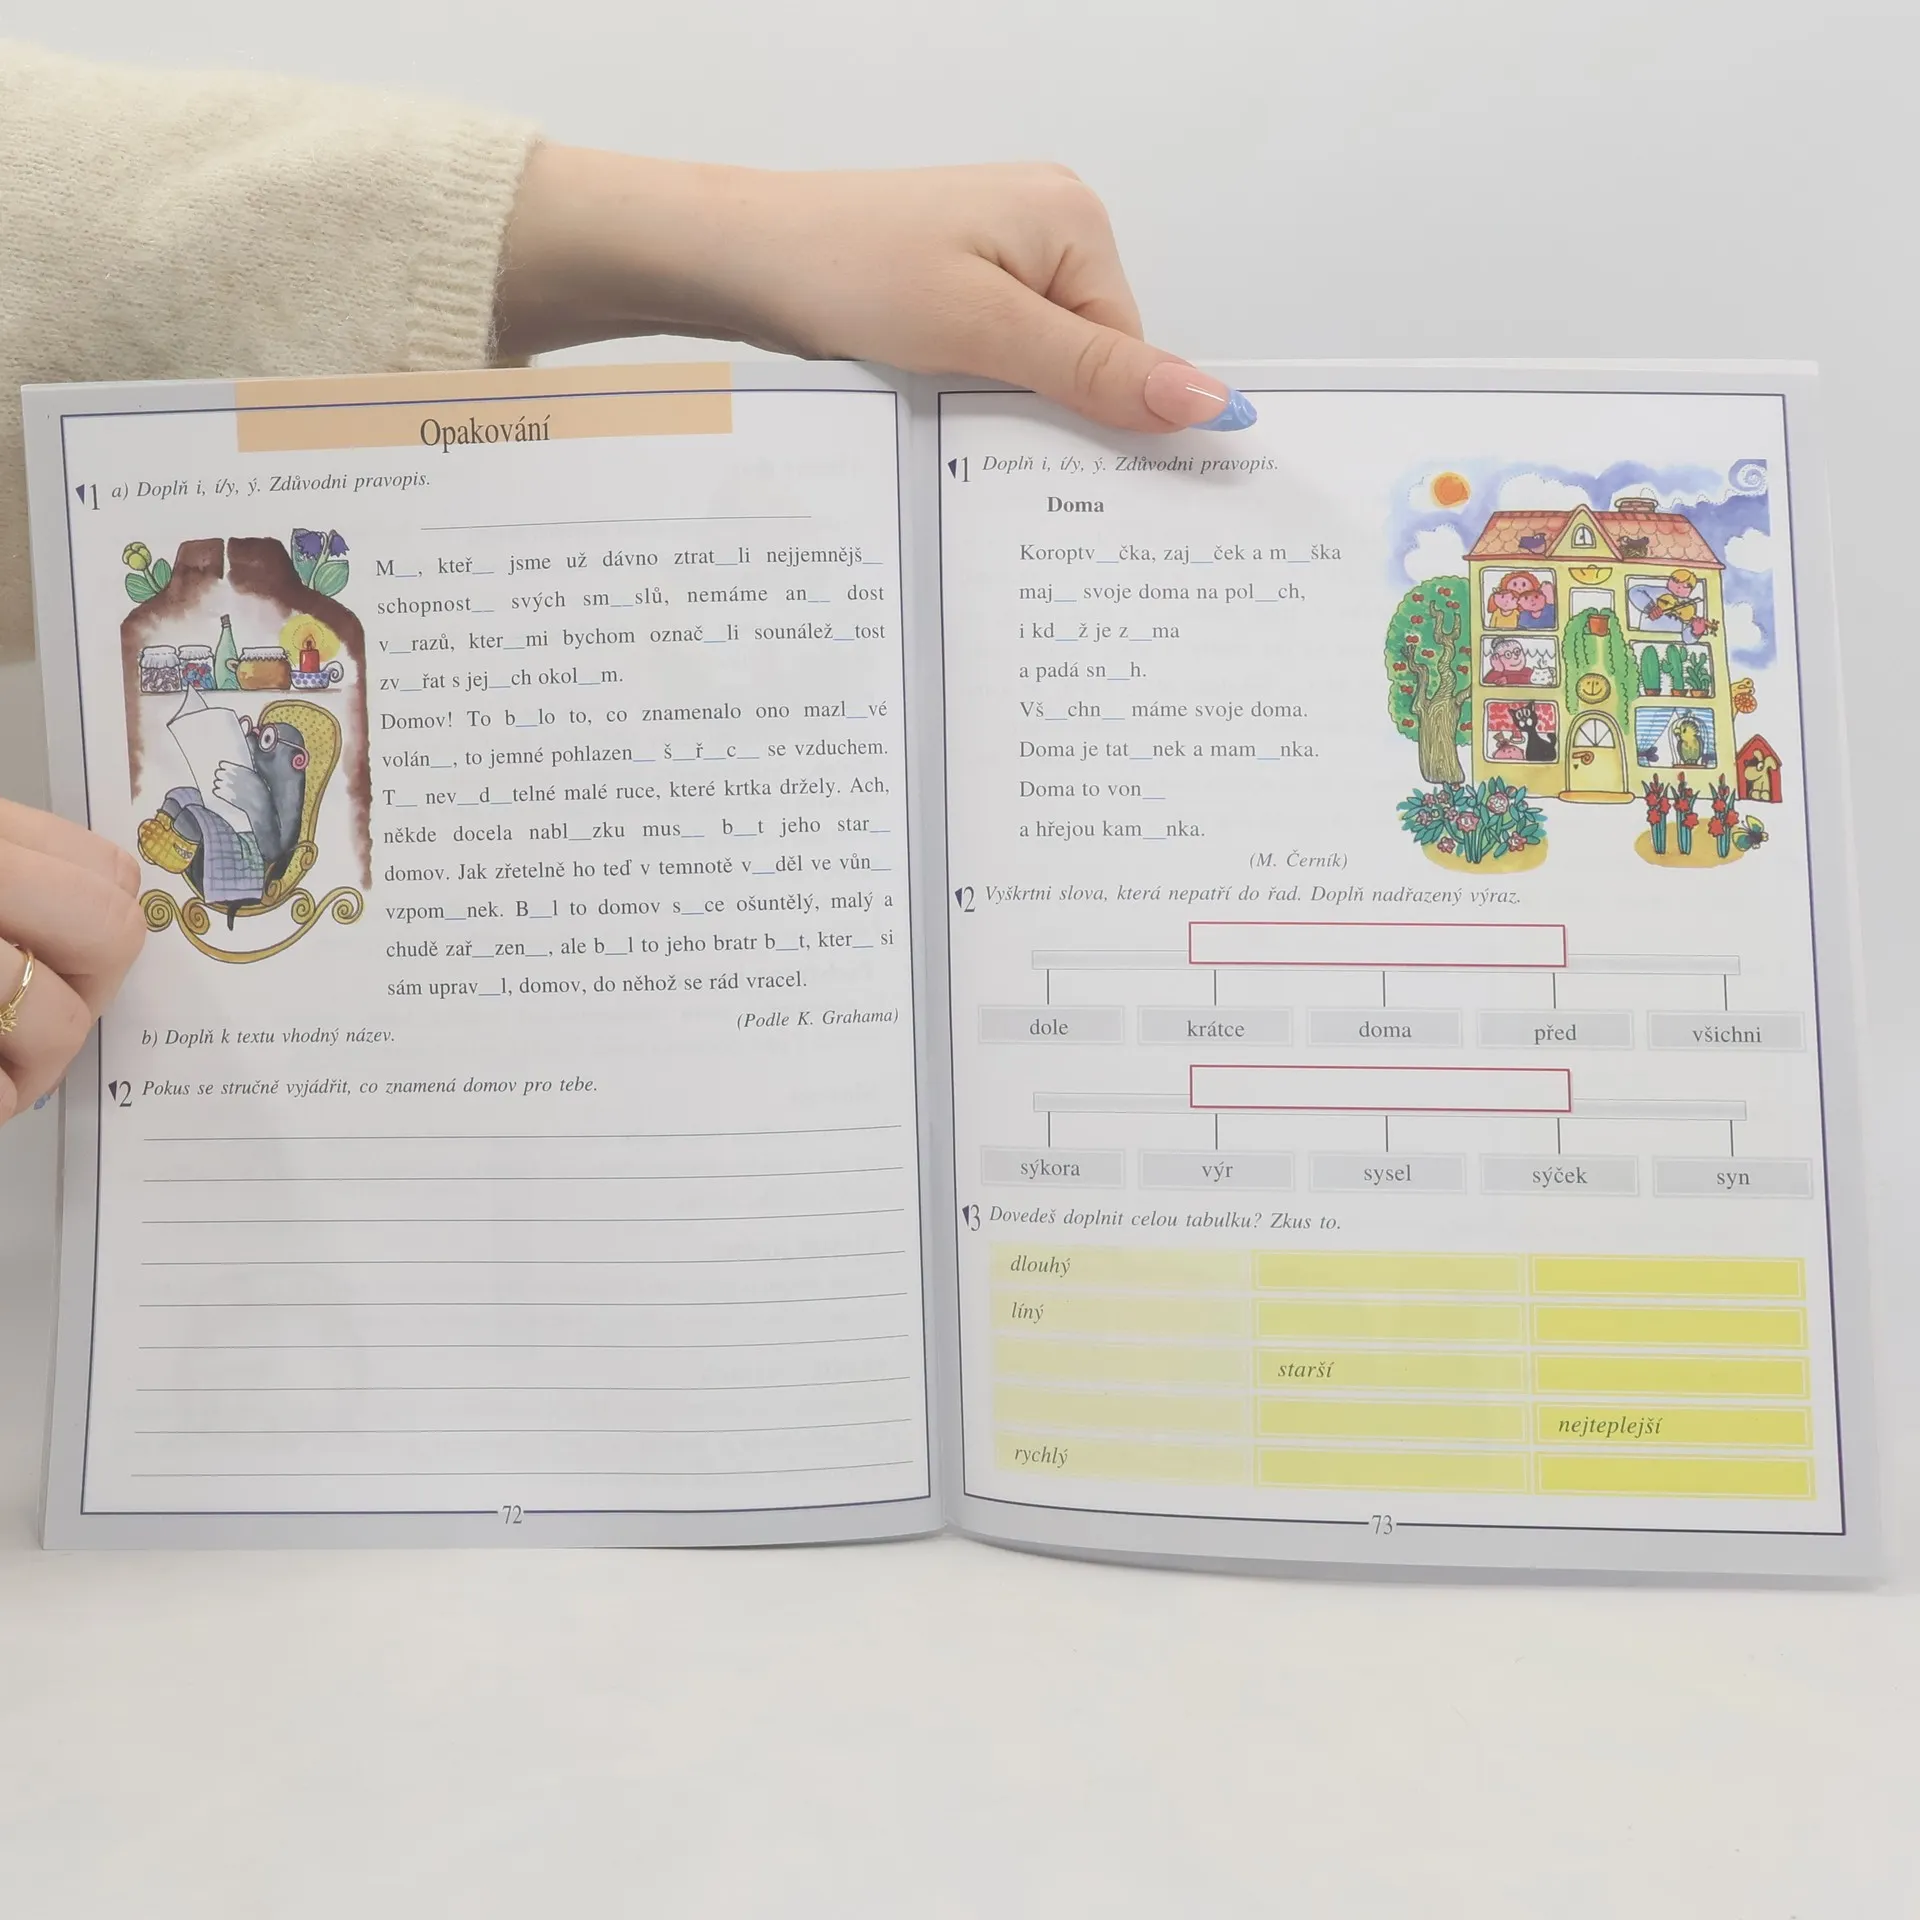 Opakování
1 a) Doplň i, í/y, ý. Zdůvodni pravopis.
M__, kteř__ jsme už dávno ztrat__li nejjemnějš__
schopnost__ svých sm__slů, nemáme an__ dost
v__razů, kter__mi bychom označ__li sounálež__tost
zv__řat s jej__ch okol__m.
Domov! To b__lo to, co znamenalo ono mazl__vé
volán__, to jemné pohlazen__ š__ř__c__ se vzduchem.
T__ nev__d__telné malé ruce, které krtka držely. Ach,
někde docela nabl__zku mus__ b__t jeho star__
domov. Jak zřetelně ho teď v temnotě v__děl ve vůn__
vzpom__nek. B__l to domov s__ce ošuntělý, malý a
chudě zař__zen__, ale b__l to jeho bratr b__t, kter__ si
sám uprav__l, domov, do něhož se rád vracel.
(Podle K. Grahama)
b) Doplň k textu vhodný název.
2 Pokus se stručně vyjádřit, co znamená domov pro tebe.
72
1 Doplň i, í/y, ý. Zdůvodni pravopis.
Doma
Koroptv__čka, zaj__ček a m__ška
maj__ svoje doma na pol__ch,
i kd__ž je z__ma
a padá sn__h.
Vš__chn__ máme svoje doma.
Doma je tat__nek a mam__nka.
Doma to von__
a hřejou kam__nka.
(M. Černík)
2 Vyškrtni slova, která nepatří do řad. Doplň nadřazený výraz.
dole krátce doma před všichni
sýkora výr sysel sýček syn
3 Dovedeš doplnit celou tabulku? Zkus to.
dlouhý
líný
starší
nejteplejší
rychlý
73